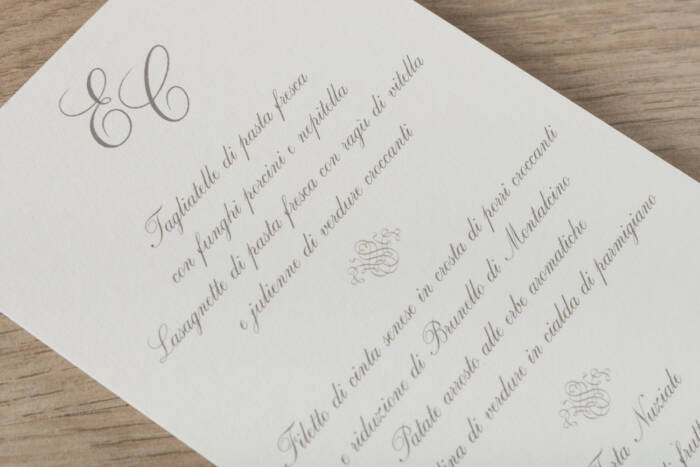 EC
Tagliatelle di pasta fresca
con funghi porcini e nepitella
Lasagnette di pasta fresca con ragù di vitella
e julienne di verdure croccanti
Filetto di cinta senese in crosta di porri croccanti
e riduzione di Brunello di Montalcino
Patate arrosto alle erbe aromatiche
di verdure in cialda di parmigiano
Nuziale
di